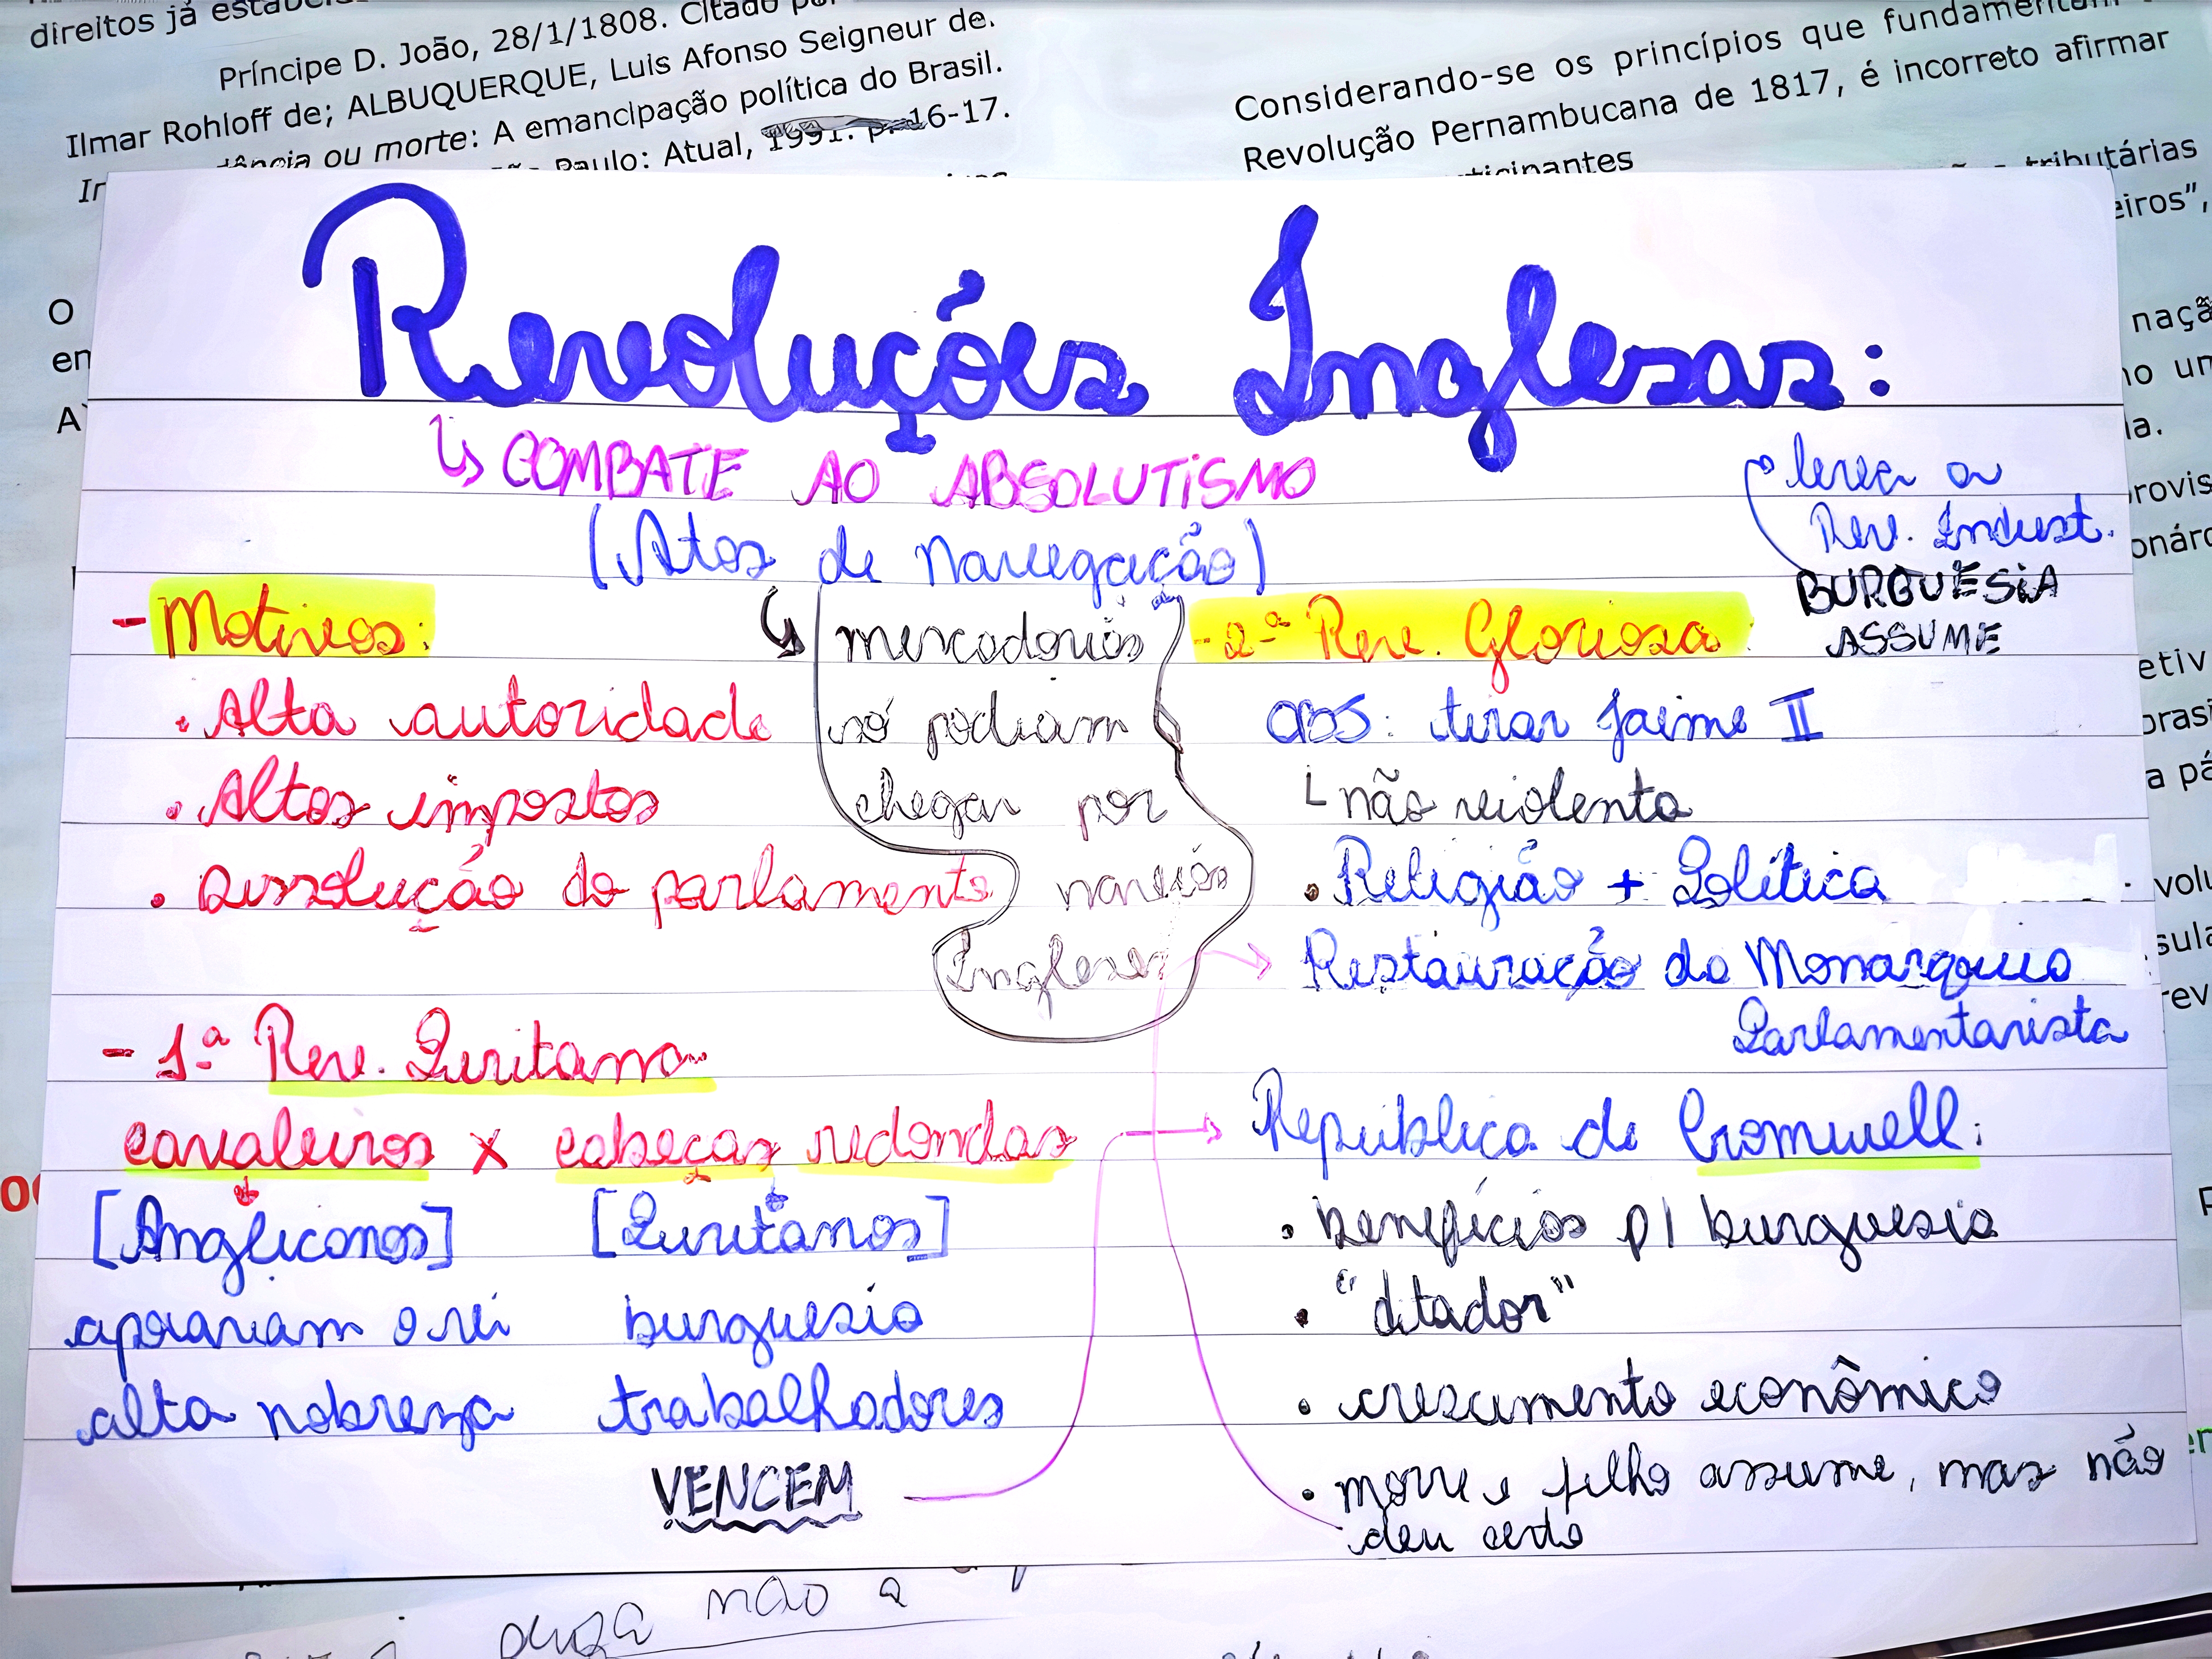 direitos já
Príncipe D. João, 28/1/1808. Citado por
Ilmar Rohloff de; ALBUQUERQUE, Luis Afonso Seigneur de.
ou morte: A emancipação política do Brasil.
Paulo: Atual, 1991. p. 16-17.
Considerando-se os princípios que fundamentam
Revolução Pernambucana de 1817, é incorreto afirmar
tributárias
Revoluções Inglesas:
↳ COMBATE AO ABSOLUTISMO
(Atos de Navegação)
↳ mercadorias
só podiam
chegar por
navios
Ingleses
- Motivos:
• Alta autoridade
• Altos impostos
• Dissolução do parlamento
- 1ª Rev. Puritana
cavaleiros x cabeças redondas
[Anglicanos] [Puritanos]
apoiavam o rei burguesia
alta nobreza trabalhadores
VENCEM
leva a
Rev. Indust.
BURGUESIA
ASSUME
- 2ª Rev. Gloriosa:
OBS: tirar Jaime II
└ não violenta
• Religião + Política
Restauração da Monarquia
Parlamentarista
República de Cromwell:
• benefícios p/ burguesia
• "ditador"
• crescimento econômico
• morre e filho assume, mas não
deu certo
não a